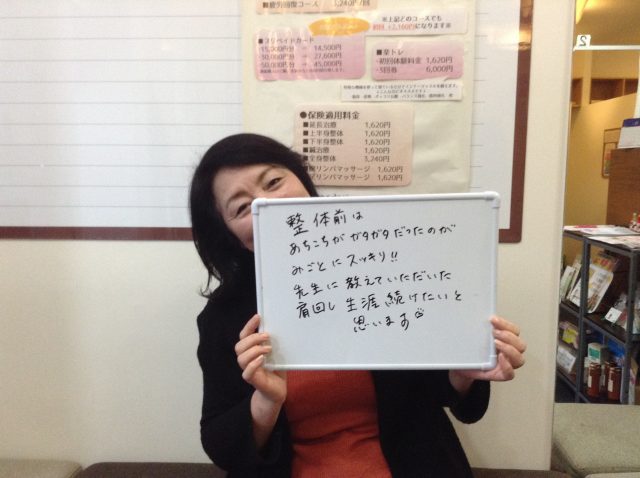 疲労回復コース 3,240円/回
※上記どのコースでも
初回 +2,160円になります※
■プリペイドカード
15,000円分 → 14,500円
30,000円分 → 27,600円
50,000円分 → 45,000円
■楽トレ
・初回体験料金 1,620円
・5回券 6,000円
●保険適用料金
■延長治療 1,620円
■上半身整体 1,620円
■下半身整体 1,620円
■鍼治療 1,620円
■全身整体 3,240円
リンパマッサージ 1,620円
リンパマッサージ 1,620円
整体前は
あちこちがガタガタだったのが
みごとにスッキリ!!
先生に教えていただいた
肩回し生涯続けたいと
思います
2